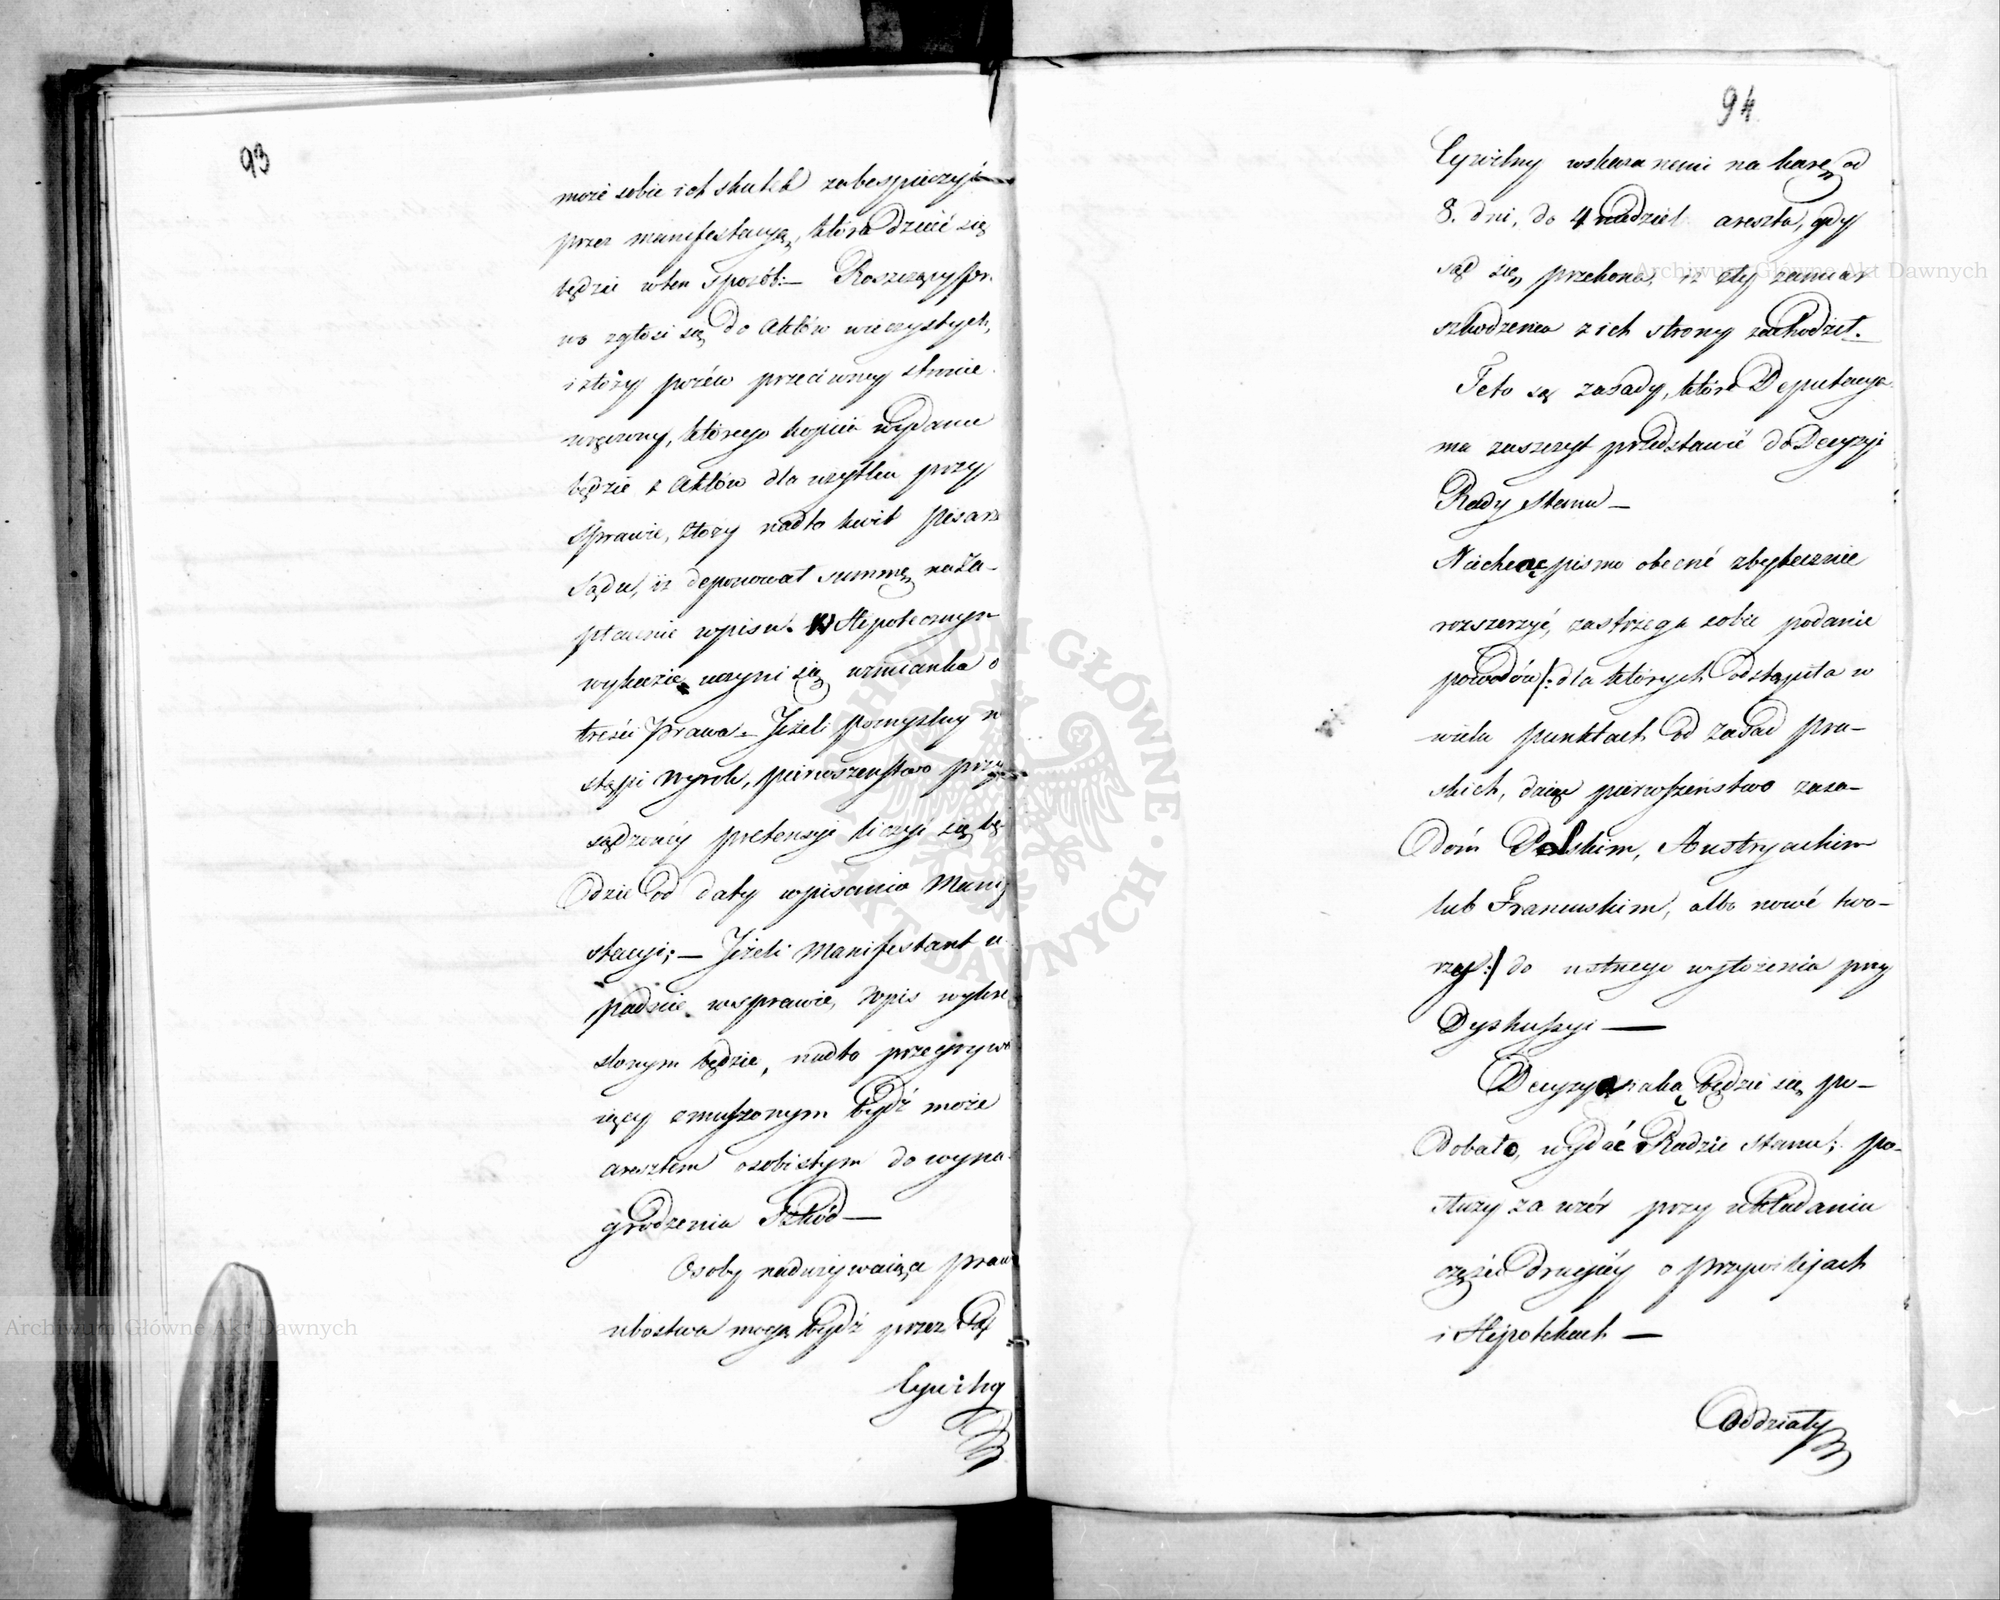 93
może sobie ich skutek zabespieczyć
przez manifestacyą, która dziać się
będzie w ten sposób: — Roszczący pra
wo zgłosi się do Aktów wieczystych,
i złoży pozew przeciwney stronie
wręczony, którego kopiia wydana
będzie z Aktów dla użytku przy
sprawie, złoży nadto kwit pisarza
Sądu, iż deponował summę na za-
płacenie wpisu. W Hipotecznym
wykazie uczyni się wzmianka o
treści prawa. — Jeżeli pomyślny na
stąpi wyrok, pierwszeństwo przy
sądzonéy pretensyi liczyć się bę-
dzie od daty wpisania Manife
stacyi; — Jeżeli Manifestant u
padnie w sprawie, wpis wykre
slonym będzie, nadto przegrywa
iący zmuszonym bydź może
aresztem osobistym do wyna
grodzenia Szkód —
Osoby nadużywaiące prawa
ubóstwa mogą bydź przez Sąd
Cywilny
94
Cywilny wskazanemi na karę od
8. dni, do 4 niedziel aresztu, gdy
sąd się przekona, iż zły zamiar
szkodzenia z ich strony zachodził.
Te to są zasady, które Deputacya
ma zaszczyt przedstawić do Decyzyi
Rady Stanu —
Niechcąc pismo obecné zbytecznie
rozszerzyć, zastrzega sobie podanie
powodów /: dla których odstąpiła w
wielu punktach od zasad pru-
skich, daiąc pierwszeństwo zasa-
dom Polskim, Austryackim
lub Francuskim, albo nowé two-
rząc :/ do ustnego wyłożenia przy
Dyskussyi —
Decyzya iaką będzie się po-
dobało, wydać Radzie Stanu; po-
służy za wzór przy układaniu
części drugiéy o przywilejach
i Hipotekach —
Oddziały
Archiwum Główne Akt Dawnych
Archiwum Główne Akt Dawnych
ARCHIWUM GŁÓWNE AKT DAWNYCH